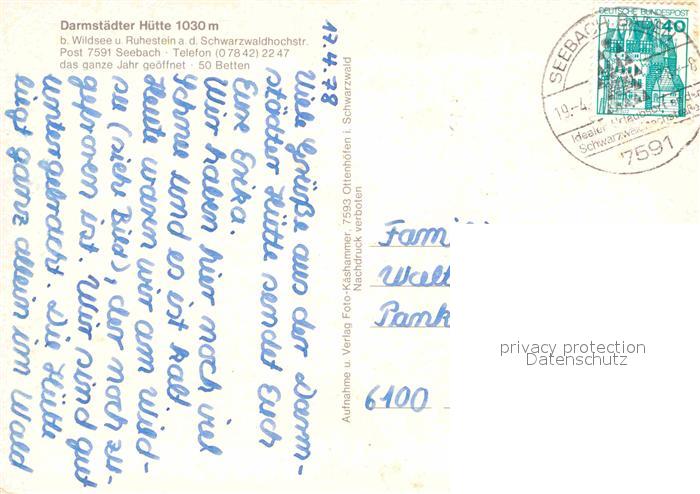 Darmstädter Hütte 1030 m
b. Wildsee u. Ruhestein a. d. Schwarzwaldhochstr.
Post 7591 Seebach · Telefon (0 78 42) 22 47
das ganze Jahr geöffnet · 50 Betten
17.4.78
Viele Grüße aus der Darm-
städter Hütte sendet Euch
Eure Erika.
Wir haben hier noch viel
Schnee und es ist kalt
Heute waren wir am Wild-
see (siehe Bild), der noch zu-
gefroren ist. Wir sind gut
untergebracht. Die Hütte
liegt ganz allein im Wald
Aufnahme u. Verlag Foto-Käshammer, 7593 Ottenhöfen i. Schwarzwald
Nachdruck verboten
DEUTSCHE BUNDESPOST
40
SEEBACH
19.-4.
Idealer Urlaubsort
Schwarzwaldhochstraße
7591
Fam
Walt
Pank
6100
privacy protection
Datenschutz